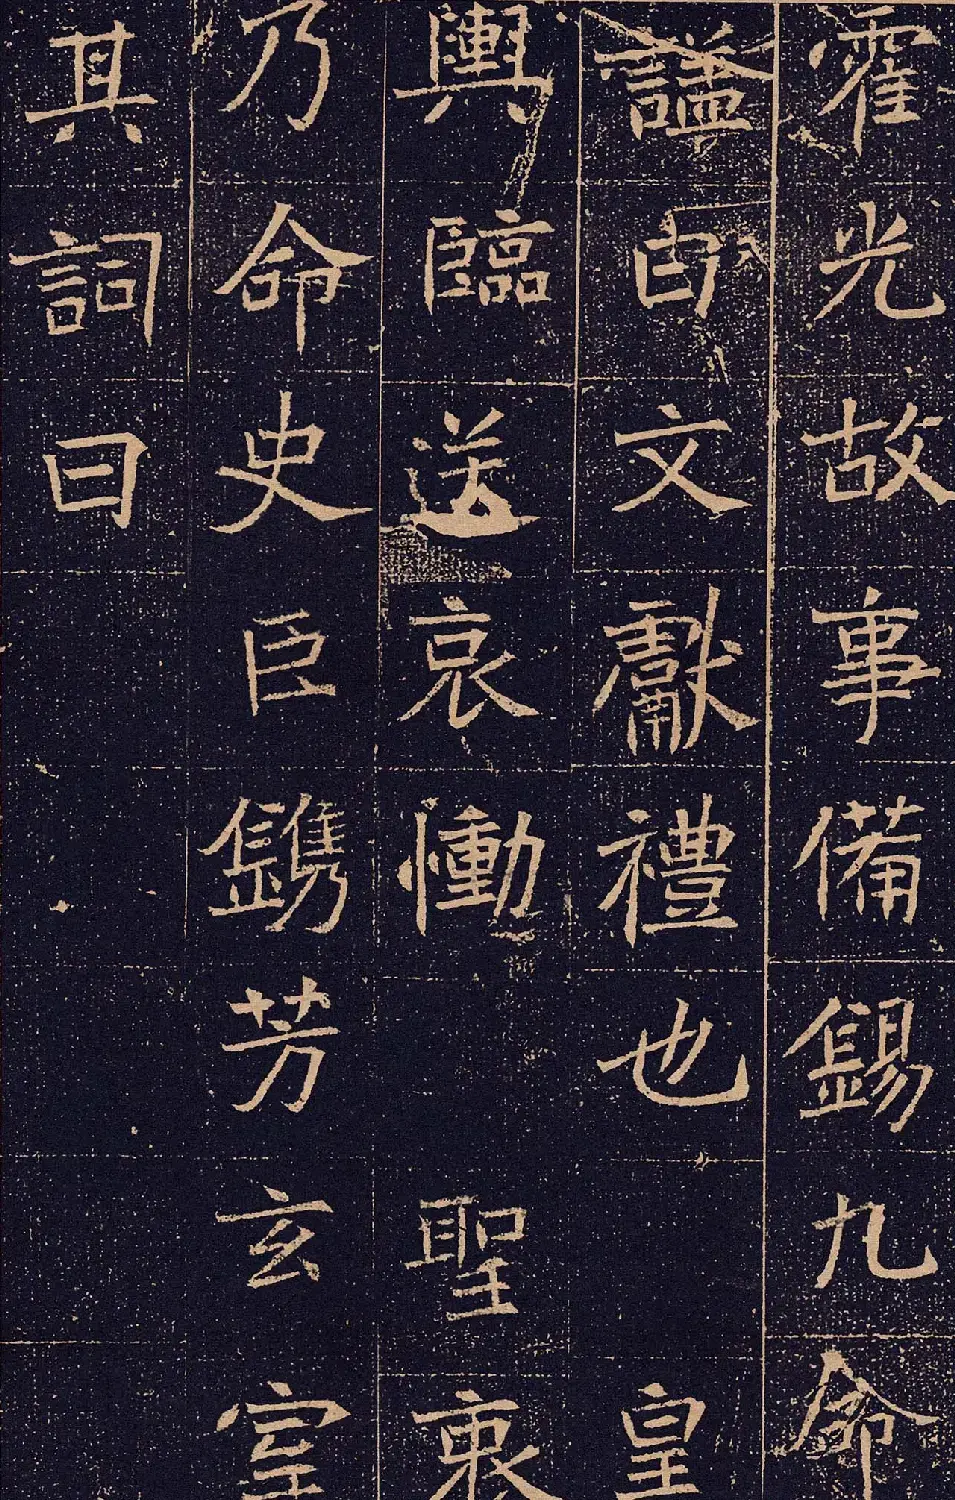 霍光故事備錫九命
謚曰文獻禮也皇
輿臨送哀慟聖衷
乃命史臣鐫芳玄室
其詞曰